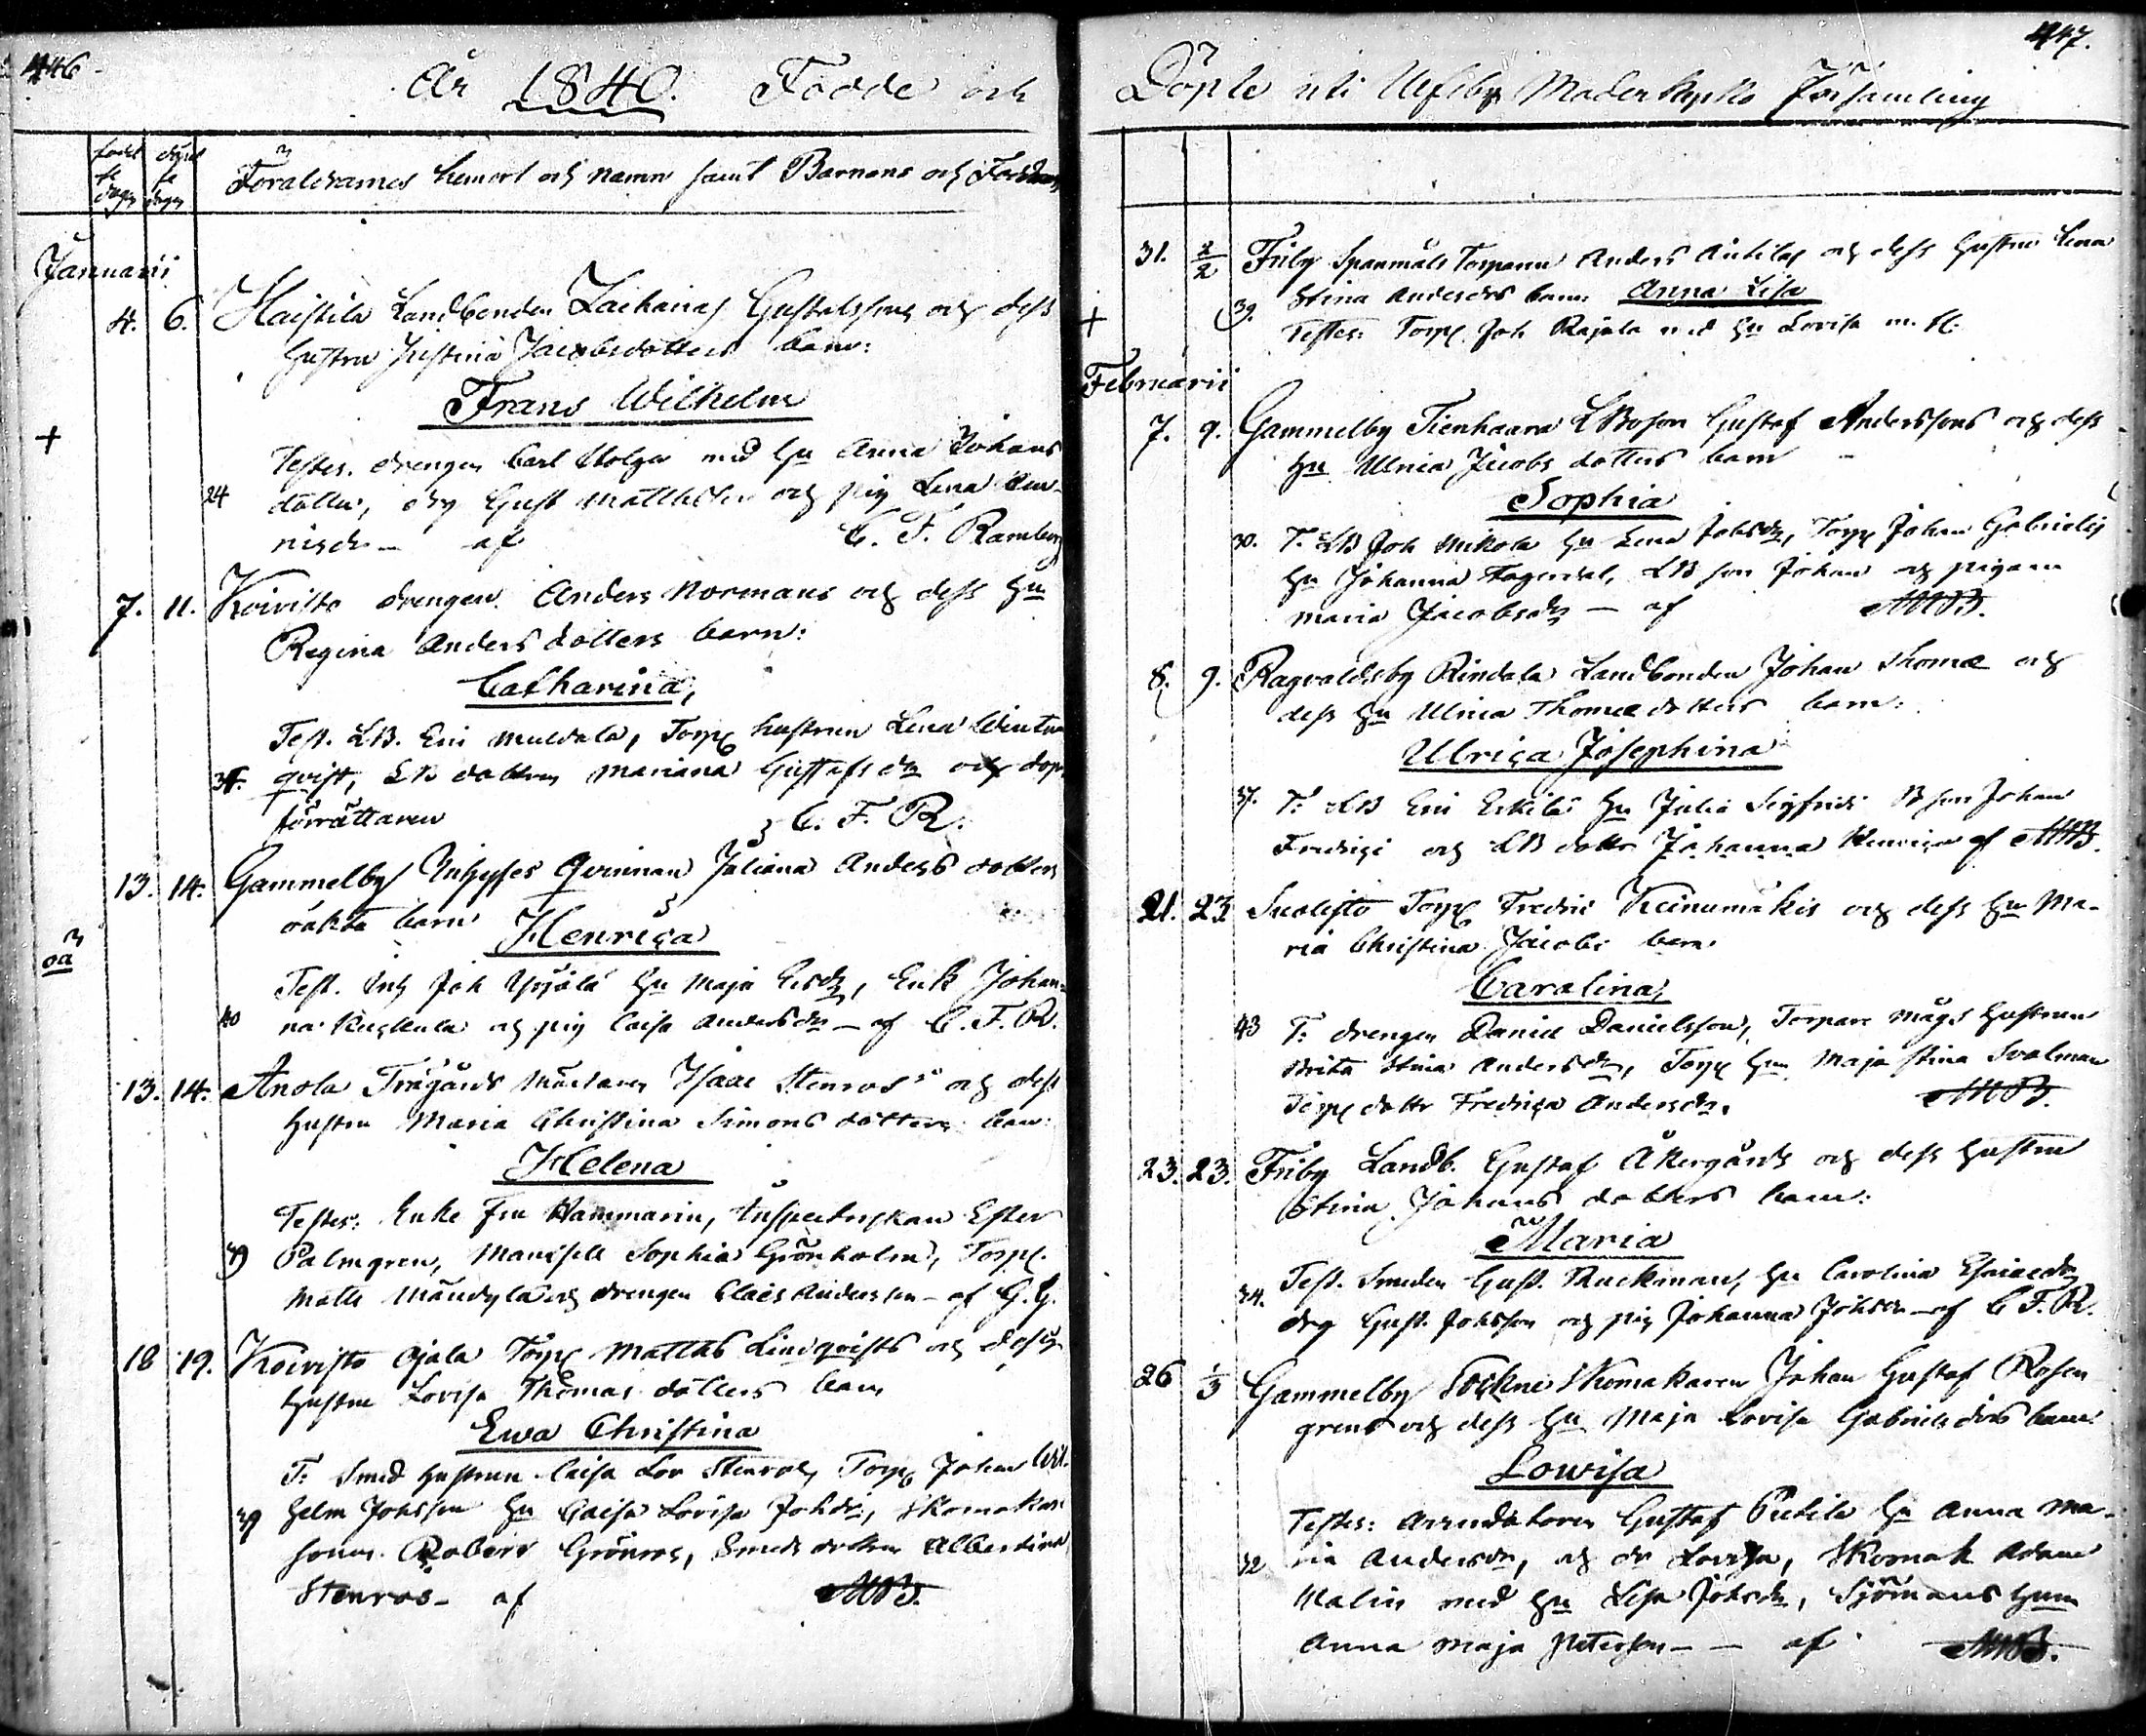 446.
År 1840. Födde och
födelse dagen
döpelse dagen
Föräldrarnes hemort och namn samt Barnens och
Januarii
4. 6. Haistila Landbonden Zacharias Gustafssons och dess
hustru Justina Jacobsdotters barn:
Frans Wilhelm
+
Testes. drengen Carl Holger med hu Anna Johans
24 dotter, drg Gust Matthsson och pig Lena
af C. F. Ramberg
7. 11. Koivisto drengen Anders Normans och dess hu
Regina Anders dotters barn:
Catharina,
Test. LB. Eric Muldala, Torp hustrun Lena Winter
34. qvist, LB dottren Mariana Gustafs dr och dop
förrättaren C. F. R.
13. 14. Gammelby Inhyses Qvinnan Juliana Anders dotters
oäkta barn Henrica
oä
Test. Inh Joh Yrjälä hu Maja Ersdr, Enk Johan-
40 na och pig Caisa Andersdr – af C. F. R.
13. 14. Anola Trägårds mästaren Isaac Stenros's och dess
hustru Maria Christina Simons dotters barn:
Helena
Testes: Enke Fru Hammarin, Inspectorskan Ester
39 Palmgren, Mamsell Sophia Grönholm, Torp.
Matts Mändylä och drengen Claës Andersson – af G. G.
18 19. Koivisto Ojala Torp Matthis Lindqvists och dess
hustru Lovisa Thomas dotters barn
Ewa Christina
T: Smed hustrun Caisa Lov Stenros, Torp Johan Wil-
39 helm Johsson hu Caisa Lovisa Johdr, Skomakar
sonen Robert Grönros, Smeds dottren Albertina
Stenros – af MB.
447.
Döpte uti Ulfsby Moderkyrko Församling
31. 2/2 Friby Spanmåls Torparen Anders Anttilas och dess hustru Lena
Stina Andersdrs barn: Anna Lisa
+ 39. Testes: Torp. Joh Rajala med hu Lovisa m. fl.
Februarii
7. 9. Gammelby Tienhaara LBoson Gustaf Anderssons och dess
hu Ulrica Jacobs dotters barn
Sophia
30. T. LB Joh Mikola hu Lena Johsdr, Torp Johan Gabriels
hu Johanna Fagerdal, LB son Johan och pigan
Maria Jacobsdr – af MB.
8. 9. Ragvaldsby Rindala Landbonden Johan Thomæ och
dess hu Ulrica Thomæ dotters barn:
Ulrica Josephina
37. T: LB Eric Erkilä hu Julia Sigfrids B son Johan
Fredrici och LB dottr Johanna Henrica af MB.
21. 23 Suolisto Torp Fredric Keinumäkis och dess hu Ma-
ria Christina Jacobs barn
Carolina,
43 T: drengen Daniel Danielsson, Torpare mågs hustrun
Brita Stina Andersdr, Torp hun Maja Stina Svalman
Torp dottr Fredrica Andersdr. MB.
23. 23. Friby Landb. Gustaf Åkergårds och dess hustru
Stina Johans dotters barn:
Maria
Test. Smeden Gust. Ruckman, hu Carolina Esaiædr
34. drg Gust. Johsson och pig Johanna Johsdr – af C F. R.
26 1/3 Gammelby Sockne Skomakaren Johan Gustaf Rosen
grens och dess hu Maja Lovisa Gabriels drs barn:
Lowisa
Testes: Arrendatoren Gustaf Pietilä hu Anna Ma-
32 ria Andersdr, och dr Lovisa, Skomak Adam
Malin med hu Lisa Johsdr, Sjömans hun
Anna Maja Peterson – – af MB.